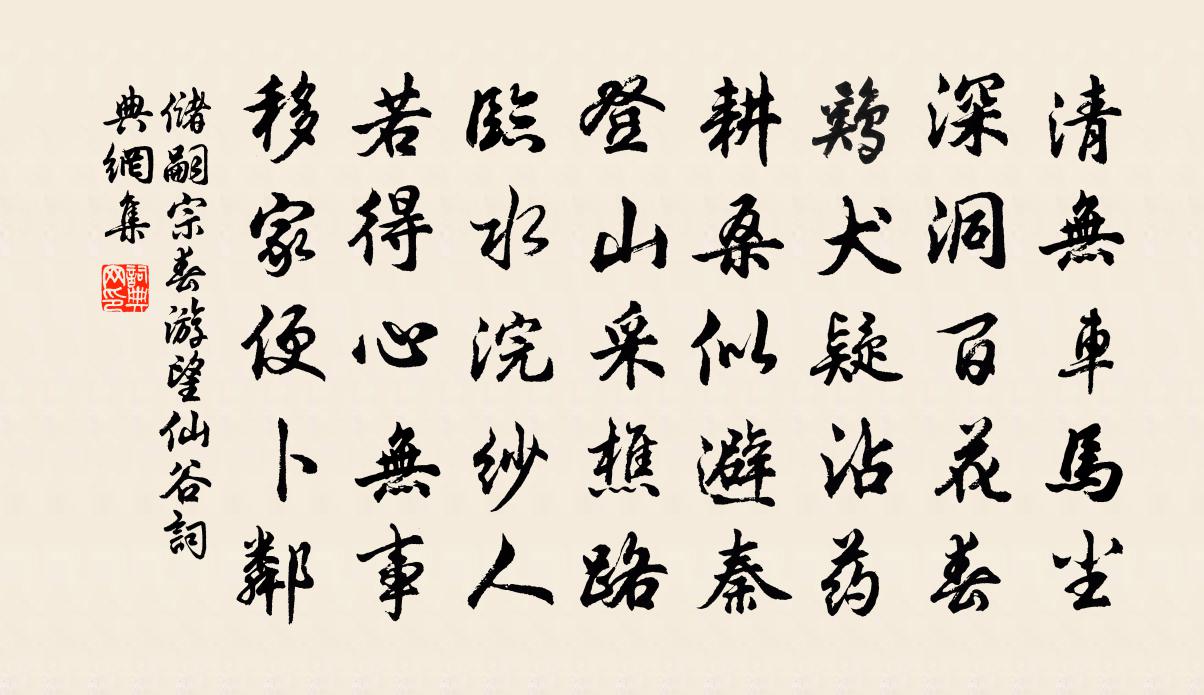 清無車馬塵
深洞百花春
鷄犬疑沾药
耕桑似避秦
登山采樵路
臨水浣紗人
若得心無事
移家便卜鄰
儲嗣宗春游望仙谷詞
典網集
詞典
网印